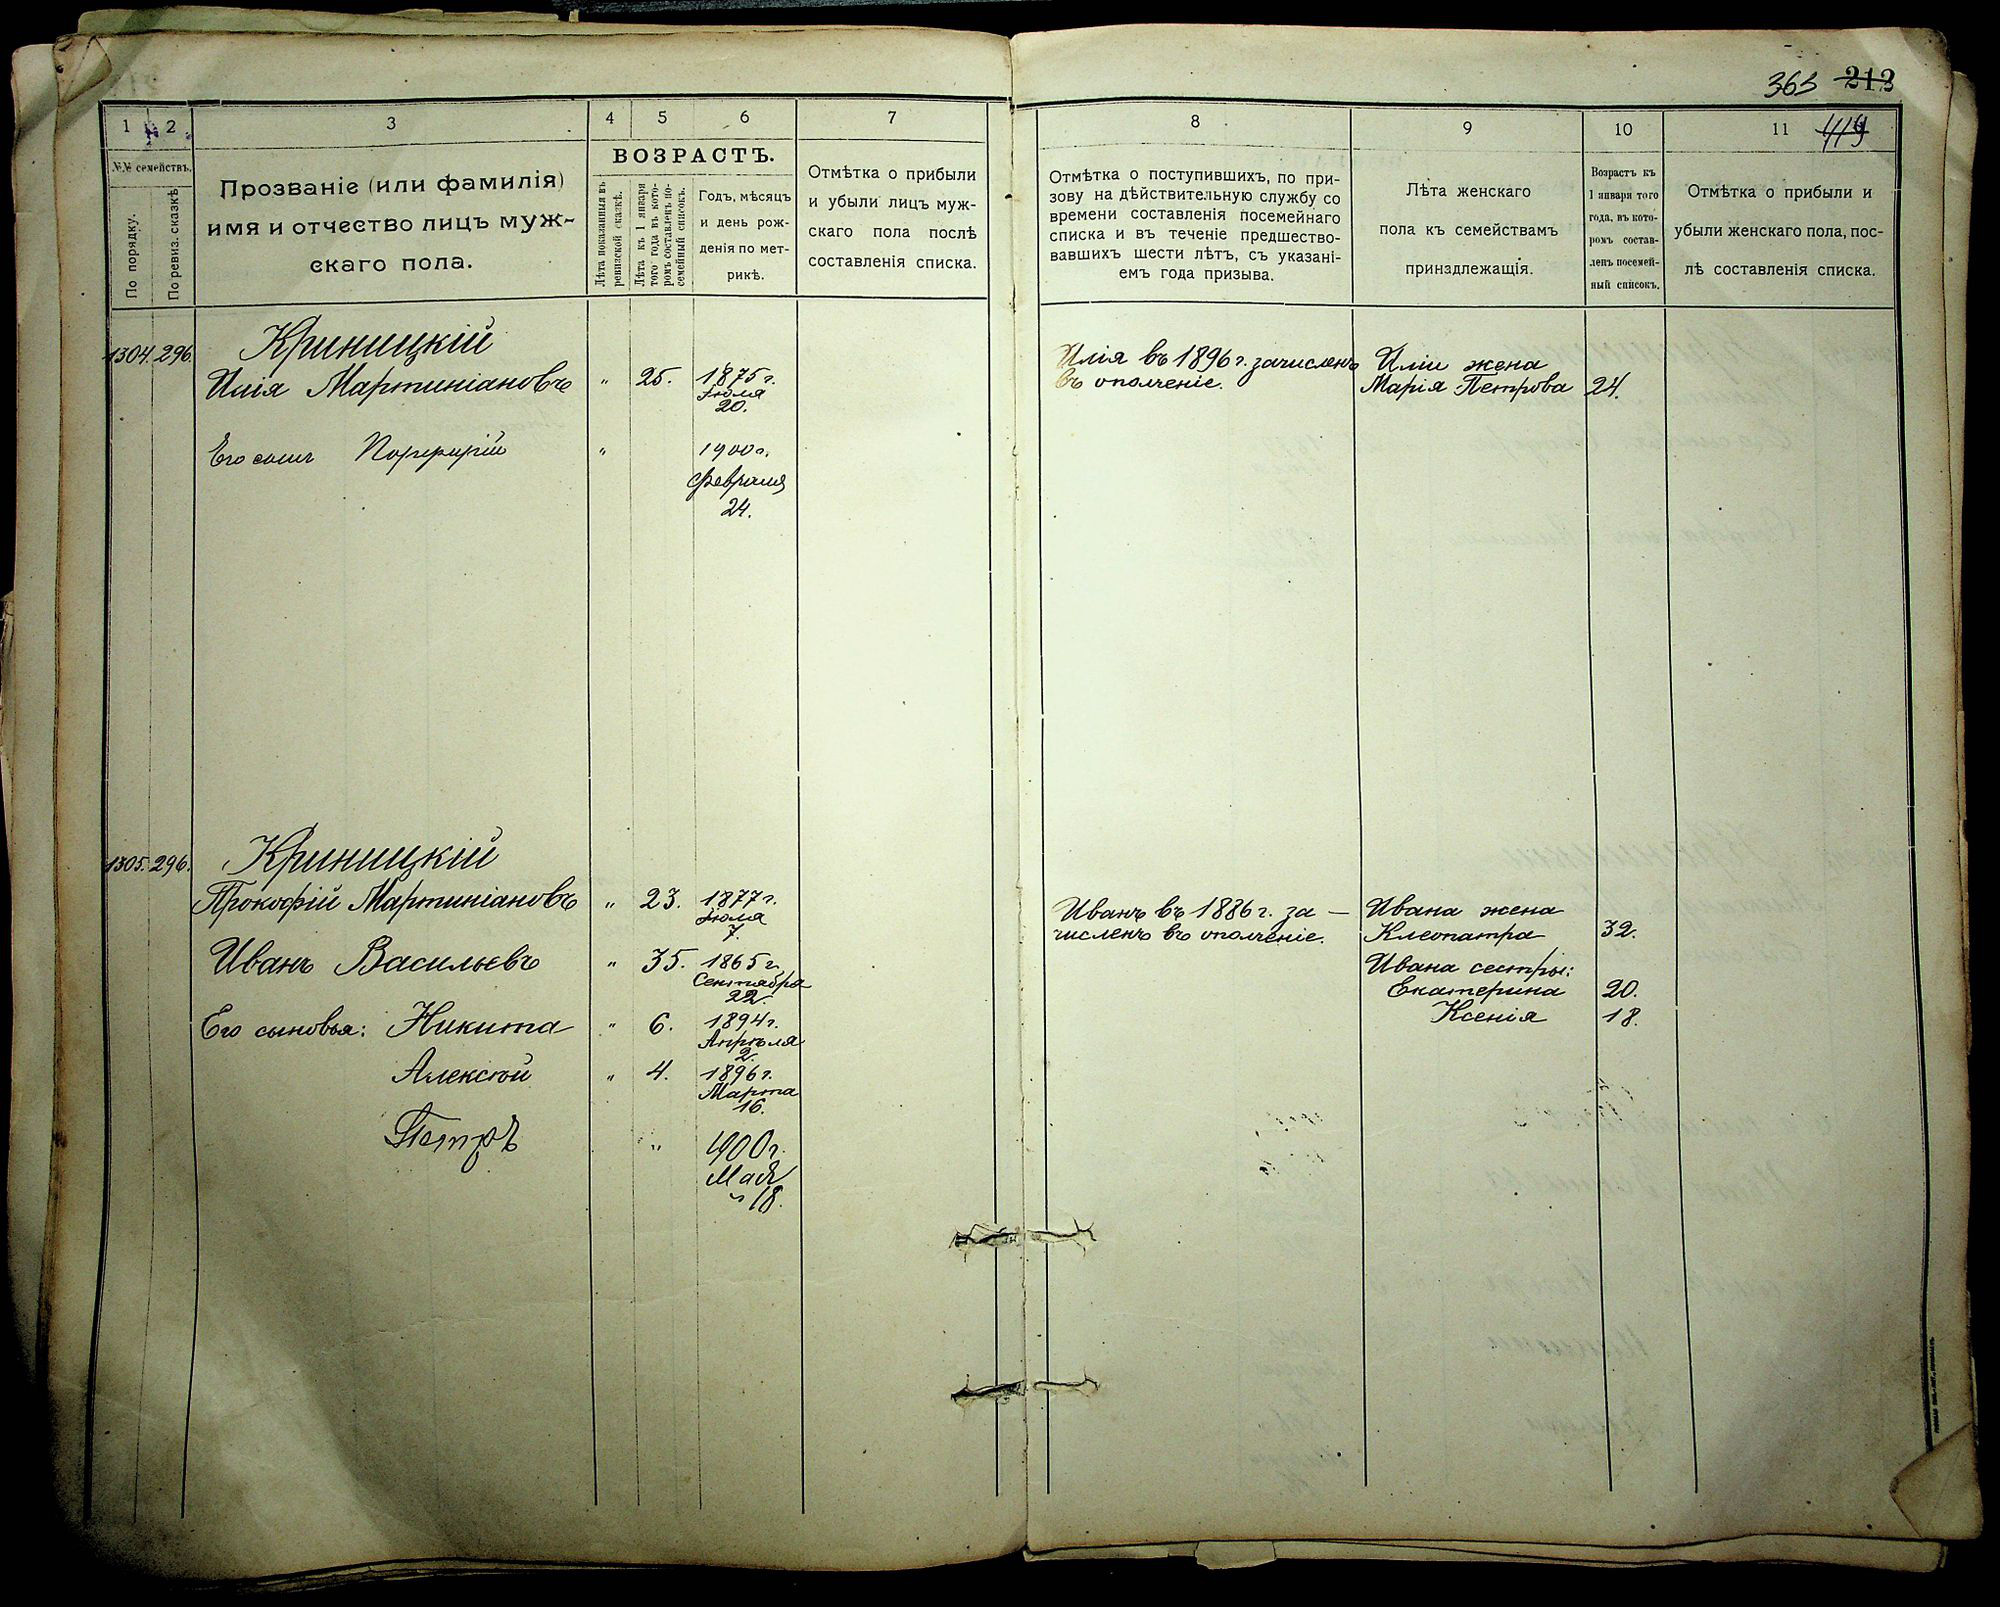 365 212
1 2 3 4 5 6 7
№№ семействъ.
По порядку.
По ревиз. сказкѣ
Прозваніе (или фамилія)
имя и отчество лицъ муж-
скаго пола.
ВОЗРАСТЪ.
Лѣта показанныя въ
ревизской сказкѣ.
Лѣта къ 1 января
того года въ кото-
ромъ составленъ по-
семейный списокъ.
Годъ, мѣсяцъ
и день рож-
денія по мет-
рикѣ.
Отмѣтка о прибыли
и убыли лицъ муж-
скаго пола послѣ
составленія списка.
8 9 10 11 419
Отмѣтка о поступившихъ, по при-
зову на дѣйствительную службу со
времени составленія посемейнаго
списка и въ теченіе предшество-
вавшихъ шести лѣтъ, съ указані-
емъ года призыва.
Лѣта женскаго
пола къ семействамъ
принадлежащія.
Возрастъ къ
1 января того
года, въ кото-
ромъ состав-
ленъ посемей-
ный списокъ.
Отмѣтка о прибыли и
убыли женскаго пола, пос-
лѣ составленія списка.
1304. 296. Криницкій
Илія Мартиніановъ " 25. 1875 г.
Іюля
20.
Его сынъ Порфирій " 1900 г.
Февраля
24.
Илія въ 1896 г. зачисленъ
въ ополченіе.
Иліи жена
Марія Петрова 24.
1305. 296. Криницкій
Прокофій Мартиніановъ " 23. 1877 г.
Іюля
7.
Иванъ Васильевъ " 35. 1865 г.
Сентября
22.
Его сыновья: Никита " 6. 1894 г.
Апрѣля
2.
Алексѣй " 4. 1896 г.
Марта
16.
Петръ " 1900 г.
Мая
" 18.
Иванъ въ 1886 г. за-
численъ въ ополченіе.
Ивана жена
Клеопатра 32.
Ивана сестры:
Екатерина 20.
Ксенія 18.